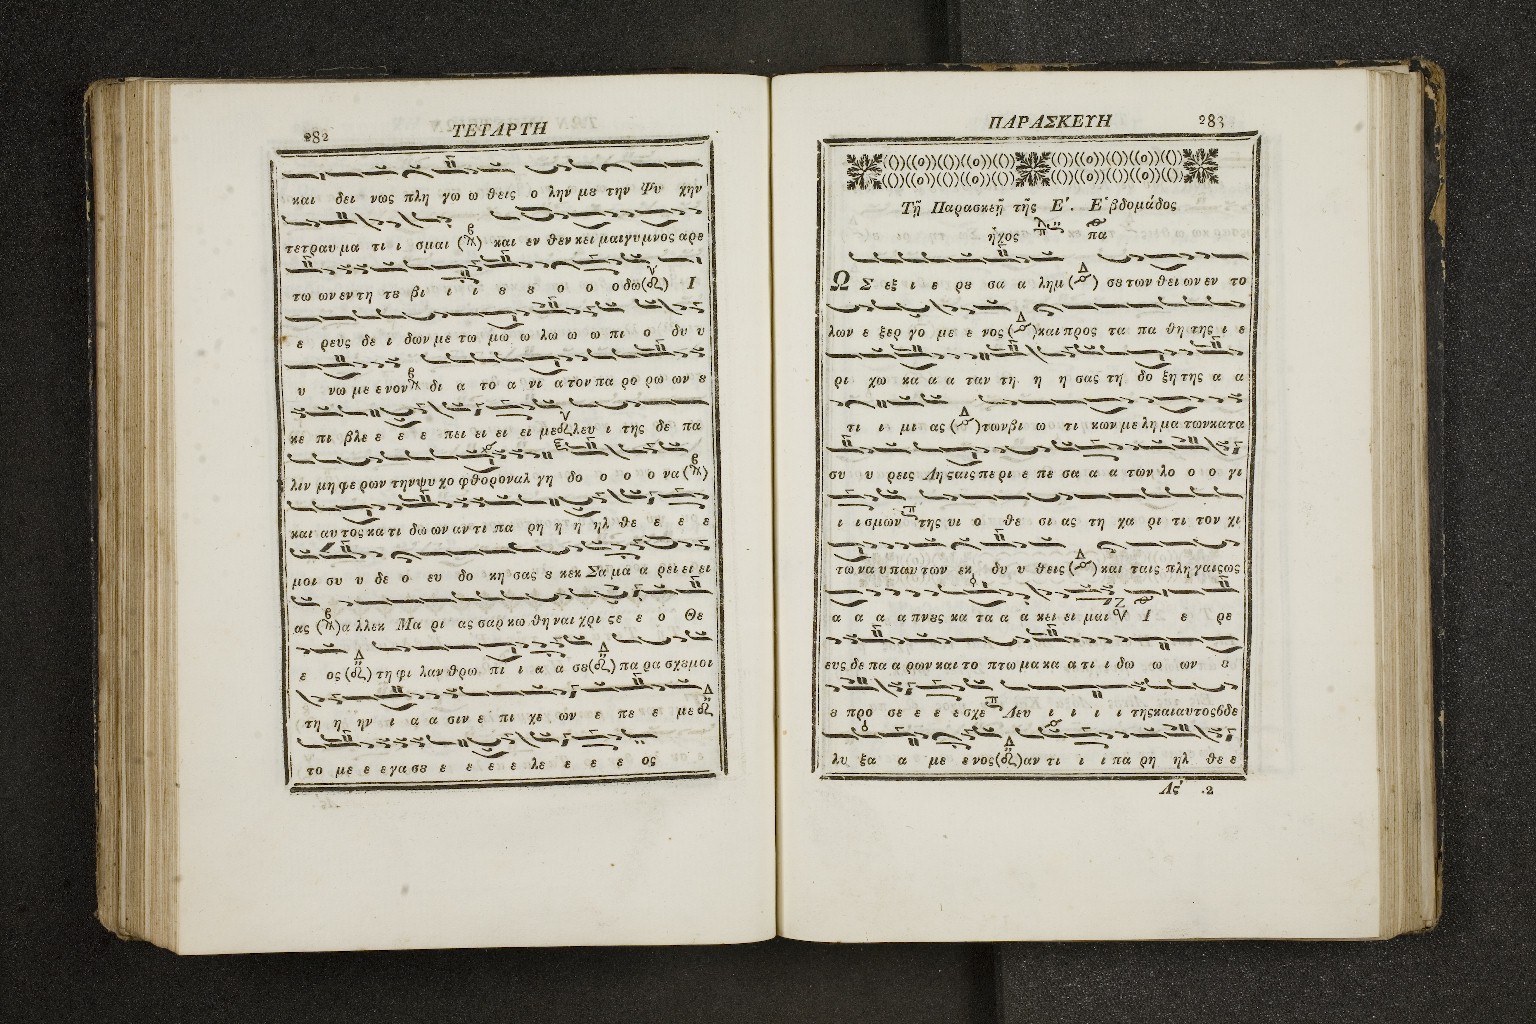 282
ΤΕΤΑΡΤΗ
και δει νως πλη γω ω θεις ο λην μȣ την Ψυ χην
τετραυ μα τι ι σμαι ( ) και εν θεν κει μαι γυμνος αρε
τω ων εν τη τȣ βι ι ι ȣ ȣ ο ο ο δω ( ) Ι
ε ρευς δε ι δων με τω μω ω λω ω ω πι ο δυ υ
υ νω με ε νον δι α το α νι α τον πα ρο ρω ων ȣ
κε πι βλε ε ε ε πει ει ει ει με λευ ι της δε πα
λιν μη φε ρων την ψυ χο φθορον αλ γη δο ο ο ο να ( )
και αυ τος κα τι δω ων αν τι πα ρη η η ηλ θε ε ε ε
μοι συ υ δε ο ευ δο κη σας ȣ κεκ Σα μα α ρει ει ει
ας ( ) α λλεκ Μα ρι ας σαρ κω θη ναι χρι ϛε ε ο Θε
ε ος ( ) τη φι λαν θρω πι ι α α σȣ ( ) πα ρα σχȣ μοι
τη η ην ι α α σιν ε πι χε ων ε πε ε με
το με ε ε γα σȣ ε ε ε ε λε ε ε ε ος
ΠΑΡΑΣΚΕΥΗ
283
Τῇ Παρασκεῇ τῆς Ε'. Ε'βδομάδος
ἦχος πα
ΩΣ εξ ι ε ρȣ σα α λημ (Δ) σȣ των θει ων εν το
λων ε ξερ γο με ε νος (Δ) και προς τα πα θη της ι ε
ρι χω κα α α ταν τη η η σας τῇ δο ξη της α α
τι ι μι ας (Δ) των βι ω τι κων με λη μα των κατα
συ υ ρεις Λῃ ϛαις πε ρι ε πε σα α α των λο ο ο γι
ι ι σμων της υι ο θε σι ας τη χα ρι τι τον χι
τω να υ παν των εκ δυ υ θεις (Δ) και ταις πλη γαις ως
α α α α πνȣς κα τα α α κει ει μαι Ι ε ρε
ευς δε πα α ρων και το πτω μα κα α τι ι δω ω ων ȣ
ȣ προ σε ε ε ε σχε Λευ ι ι ι ι της και αυτος βδε
λυ ξα α με ε νος ( ) αν τι ι ι πα ρη ηλ θε ε